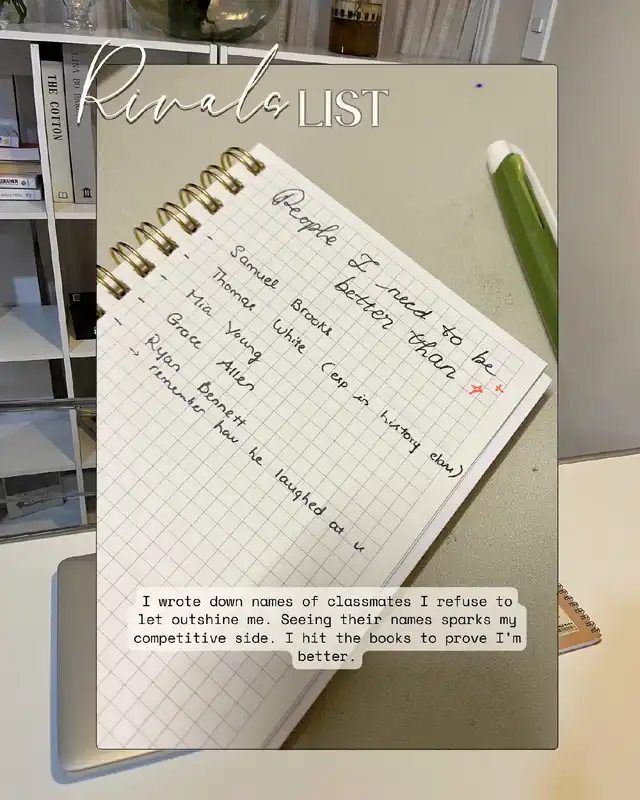 Rivals LIST
THE COTTON
LINA BO
People I need to be
better than
- Samuel Brooks
- Thomas White (esp in history class)
- Mia Young
- Grace Allen
- Ryan Bennett
→ remember how he laughed at u
I wrote down names of classmates I refuse to
let outshine me. Seeing their names sparks my
competitive side. I hit the books to prove I'm
better.